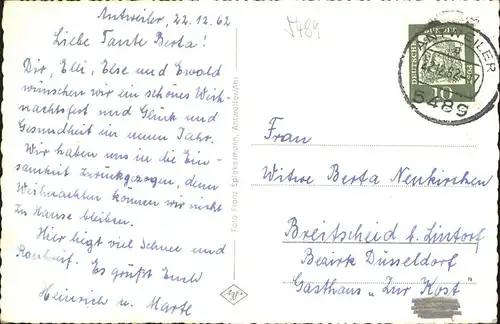 Antweiler, 22.12.62
Liebe Tante Berta!
Dir, Elli, Else und Ewald
wünschen wir ein schönes Weih-
nachtsfest und Glück und
Gesundheit im neuen Jahr.
Wir haben uns in die Ein-
samkeit zurückgezogen, denn
Weihnachten können wir nicht
zu Hause bleiben.
Hier liegt viel Schnee und
Rauhreif. Es grüßt Euch
Heinrich u. Marte
Foto Franz Spiessemann, Antweiler/Ahr
5489
DEUTSCHE
10
ANTWEILER
22.12.62
5489
Frau
Witwe Berta Neukirchen
Breitscheid b. Lintorf
Bezirk Düsseldorf
Gasthaus „Zur Kost"